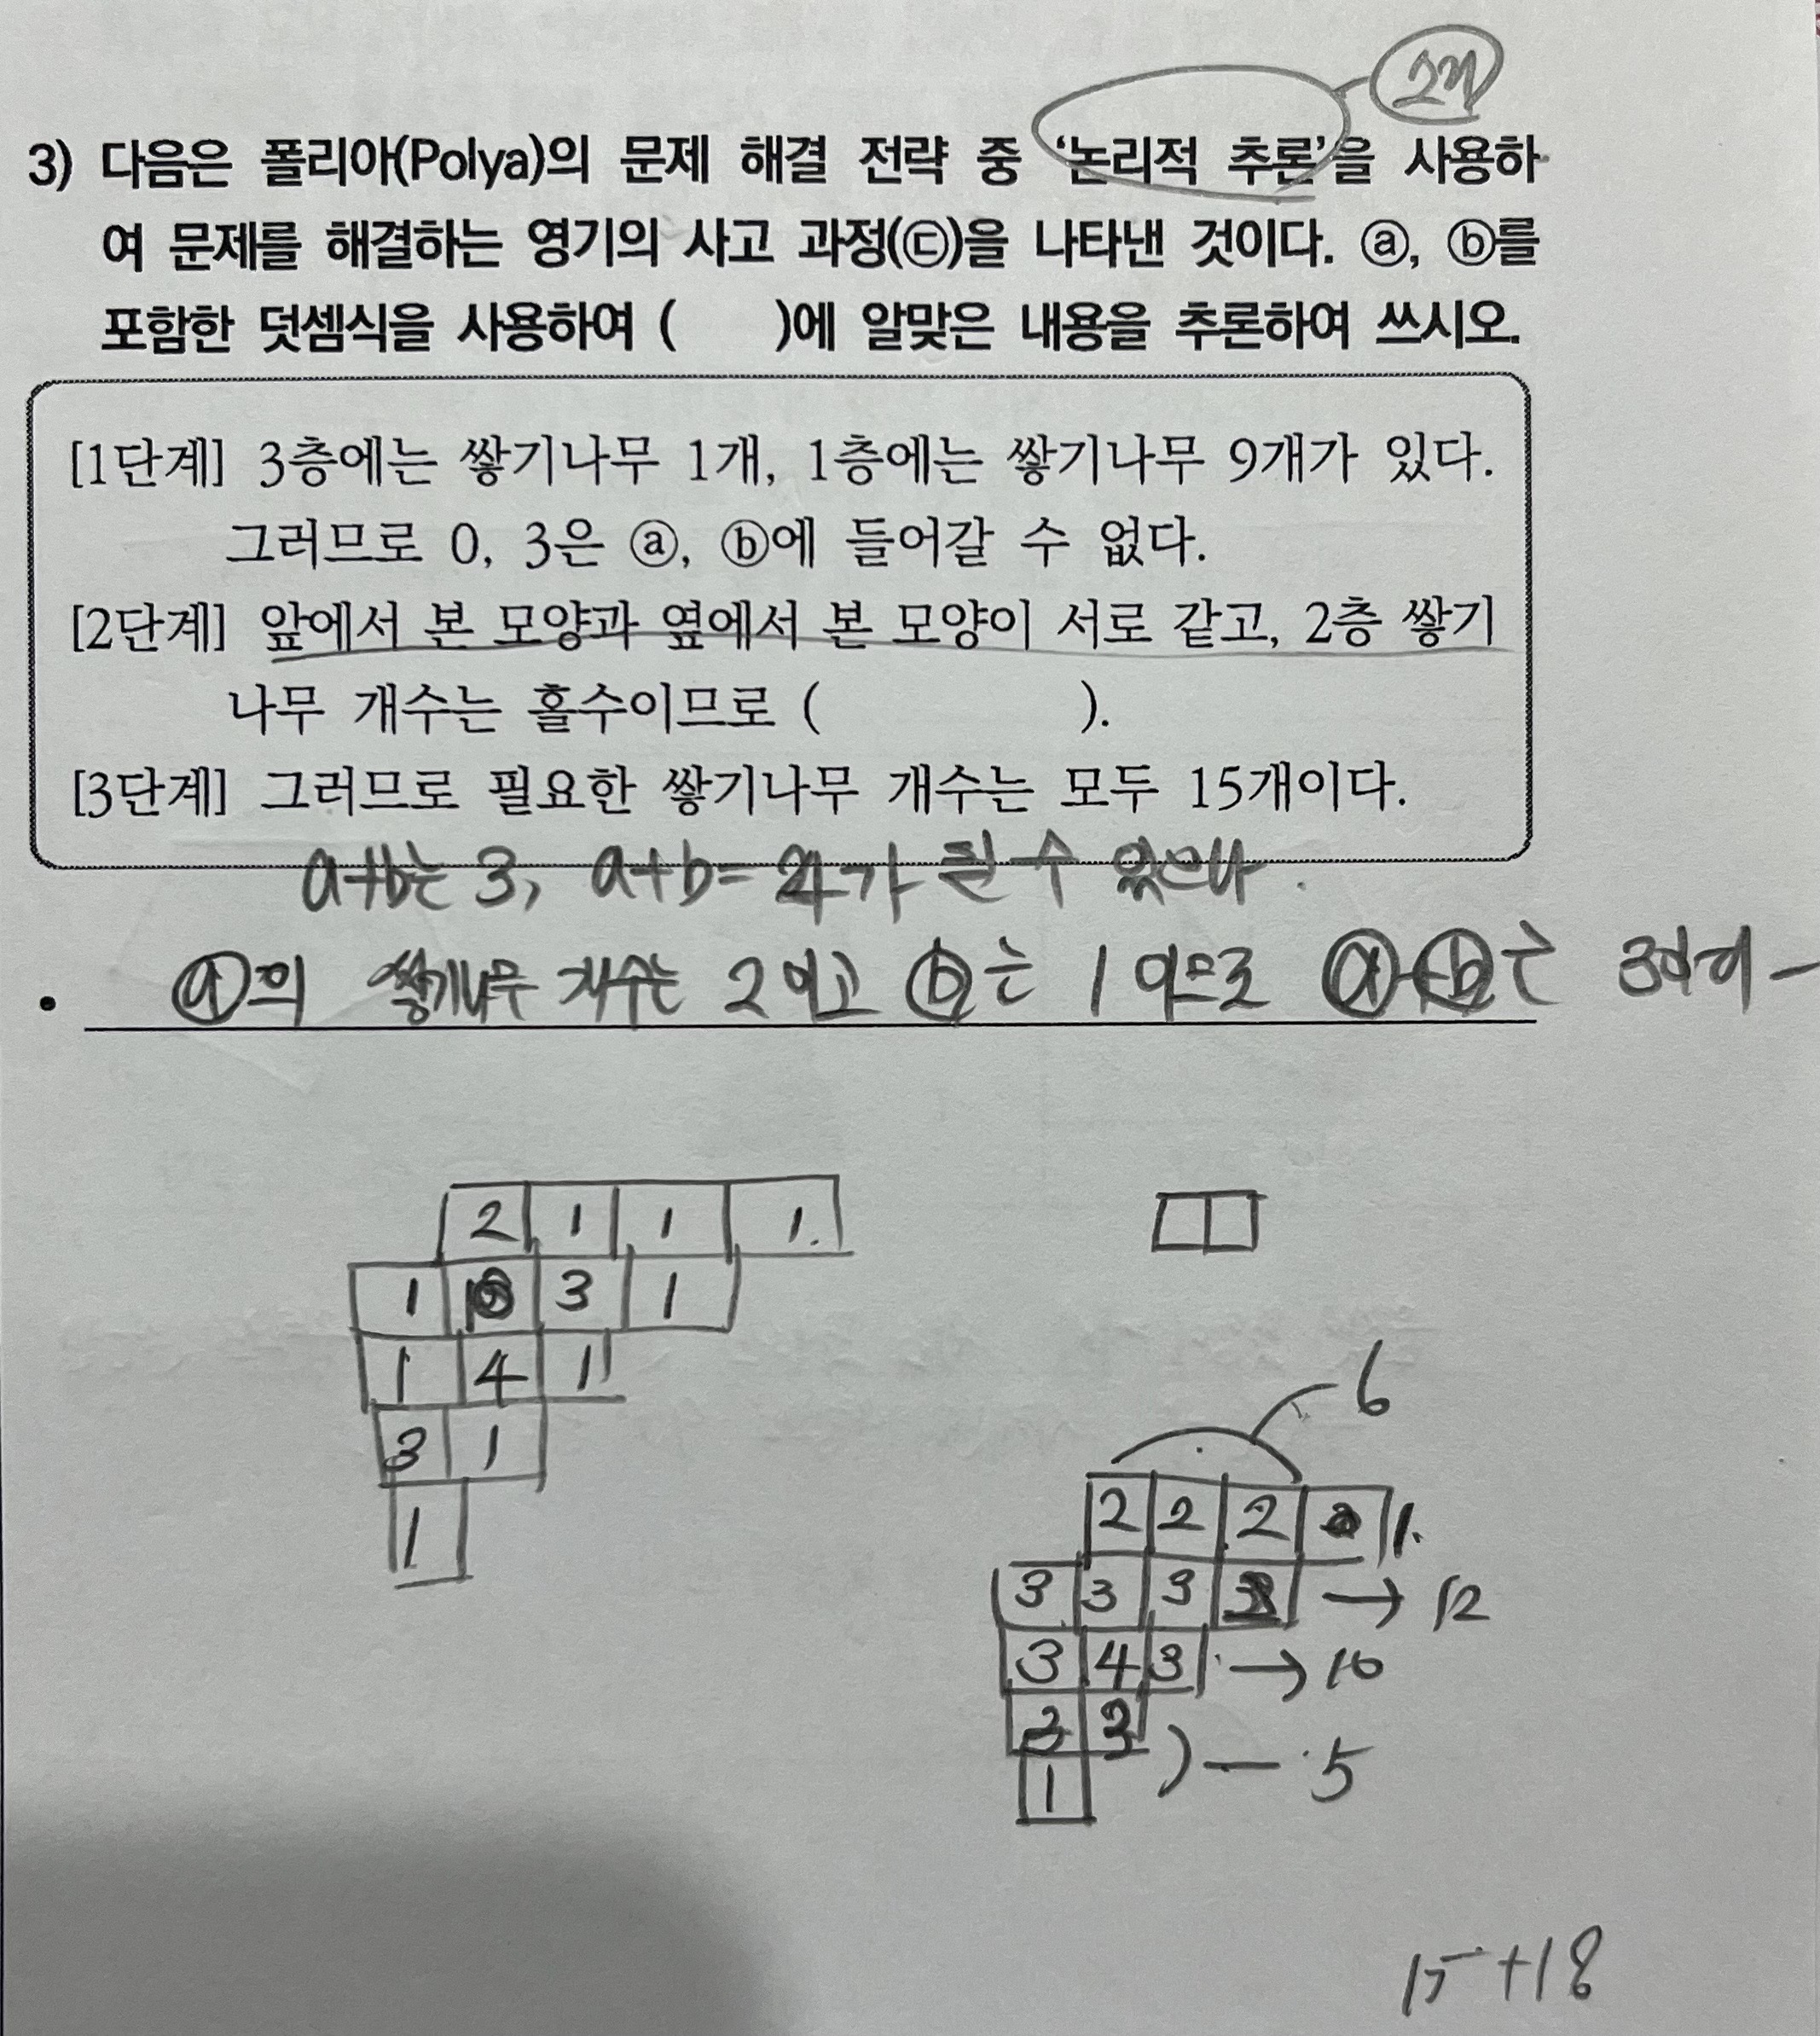 2개
3) 다음은 폴리아(Polya)의 문제 해결 전략 중 '논리적 추론'을 사용하
여 문제를 해결하는 영기의 사고 과정(ⓒ)을 나타낸 것이다. ⓐ, ⓑ를
포함한 덧셈식을 사용하여 ( )에 알맞은 내용을 추론하여 쓰시오.
[1단계] 3층에는 쌓기나무 1개, 1층에는 쌓기나무 9개가 있다.
그러므로 0, 3은 ⓐ, ⓑ에 들어갈 수 없다.
[2단계] 앞에서 본 모양과 옆에서 본 모양이 서로 같고, 2층 쌓기
나무 개수는 홀수이므로 ( ).
[3단계] 그러므로 필요한 쌓기나무 개수는 모두 15개이다.
a+b는 3, a+b= 4가 될 수 있으나
• ⓐ의 쌓기나무 개수는 2이고 ⓑ는 1이므로 ⓐ+ⓑ는 3
2 1 1 1
1 3 1
1 4 1
3 1
1
6
2 2 2 1
3 3 3 → 12
3 4 3 → 10
2 2
1 ) — 5
15+18